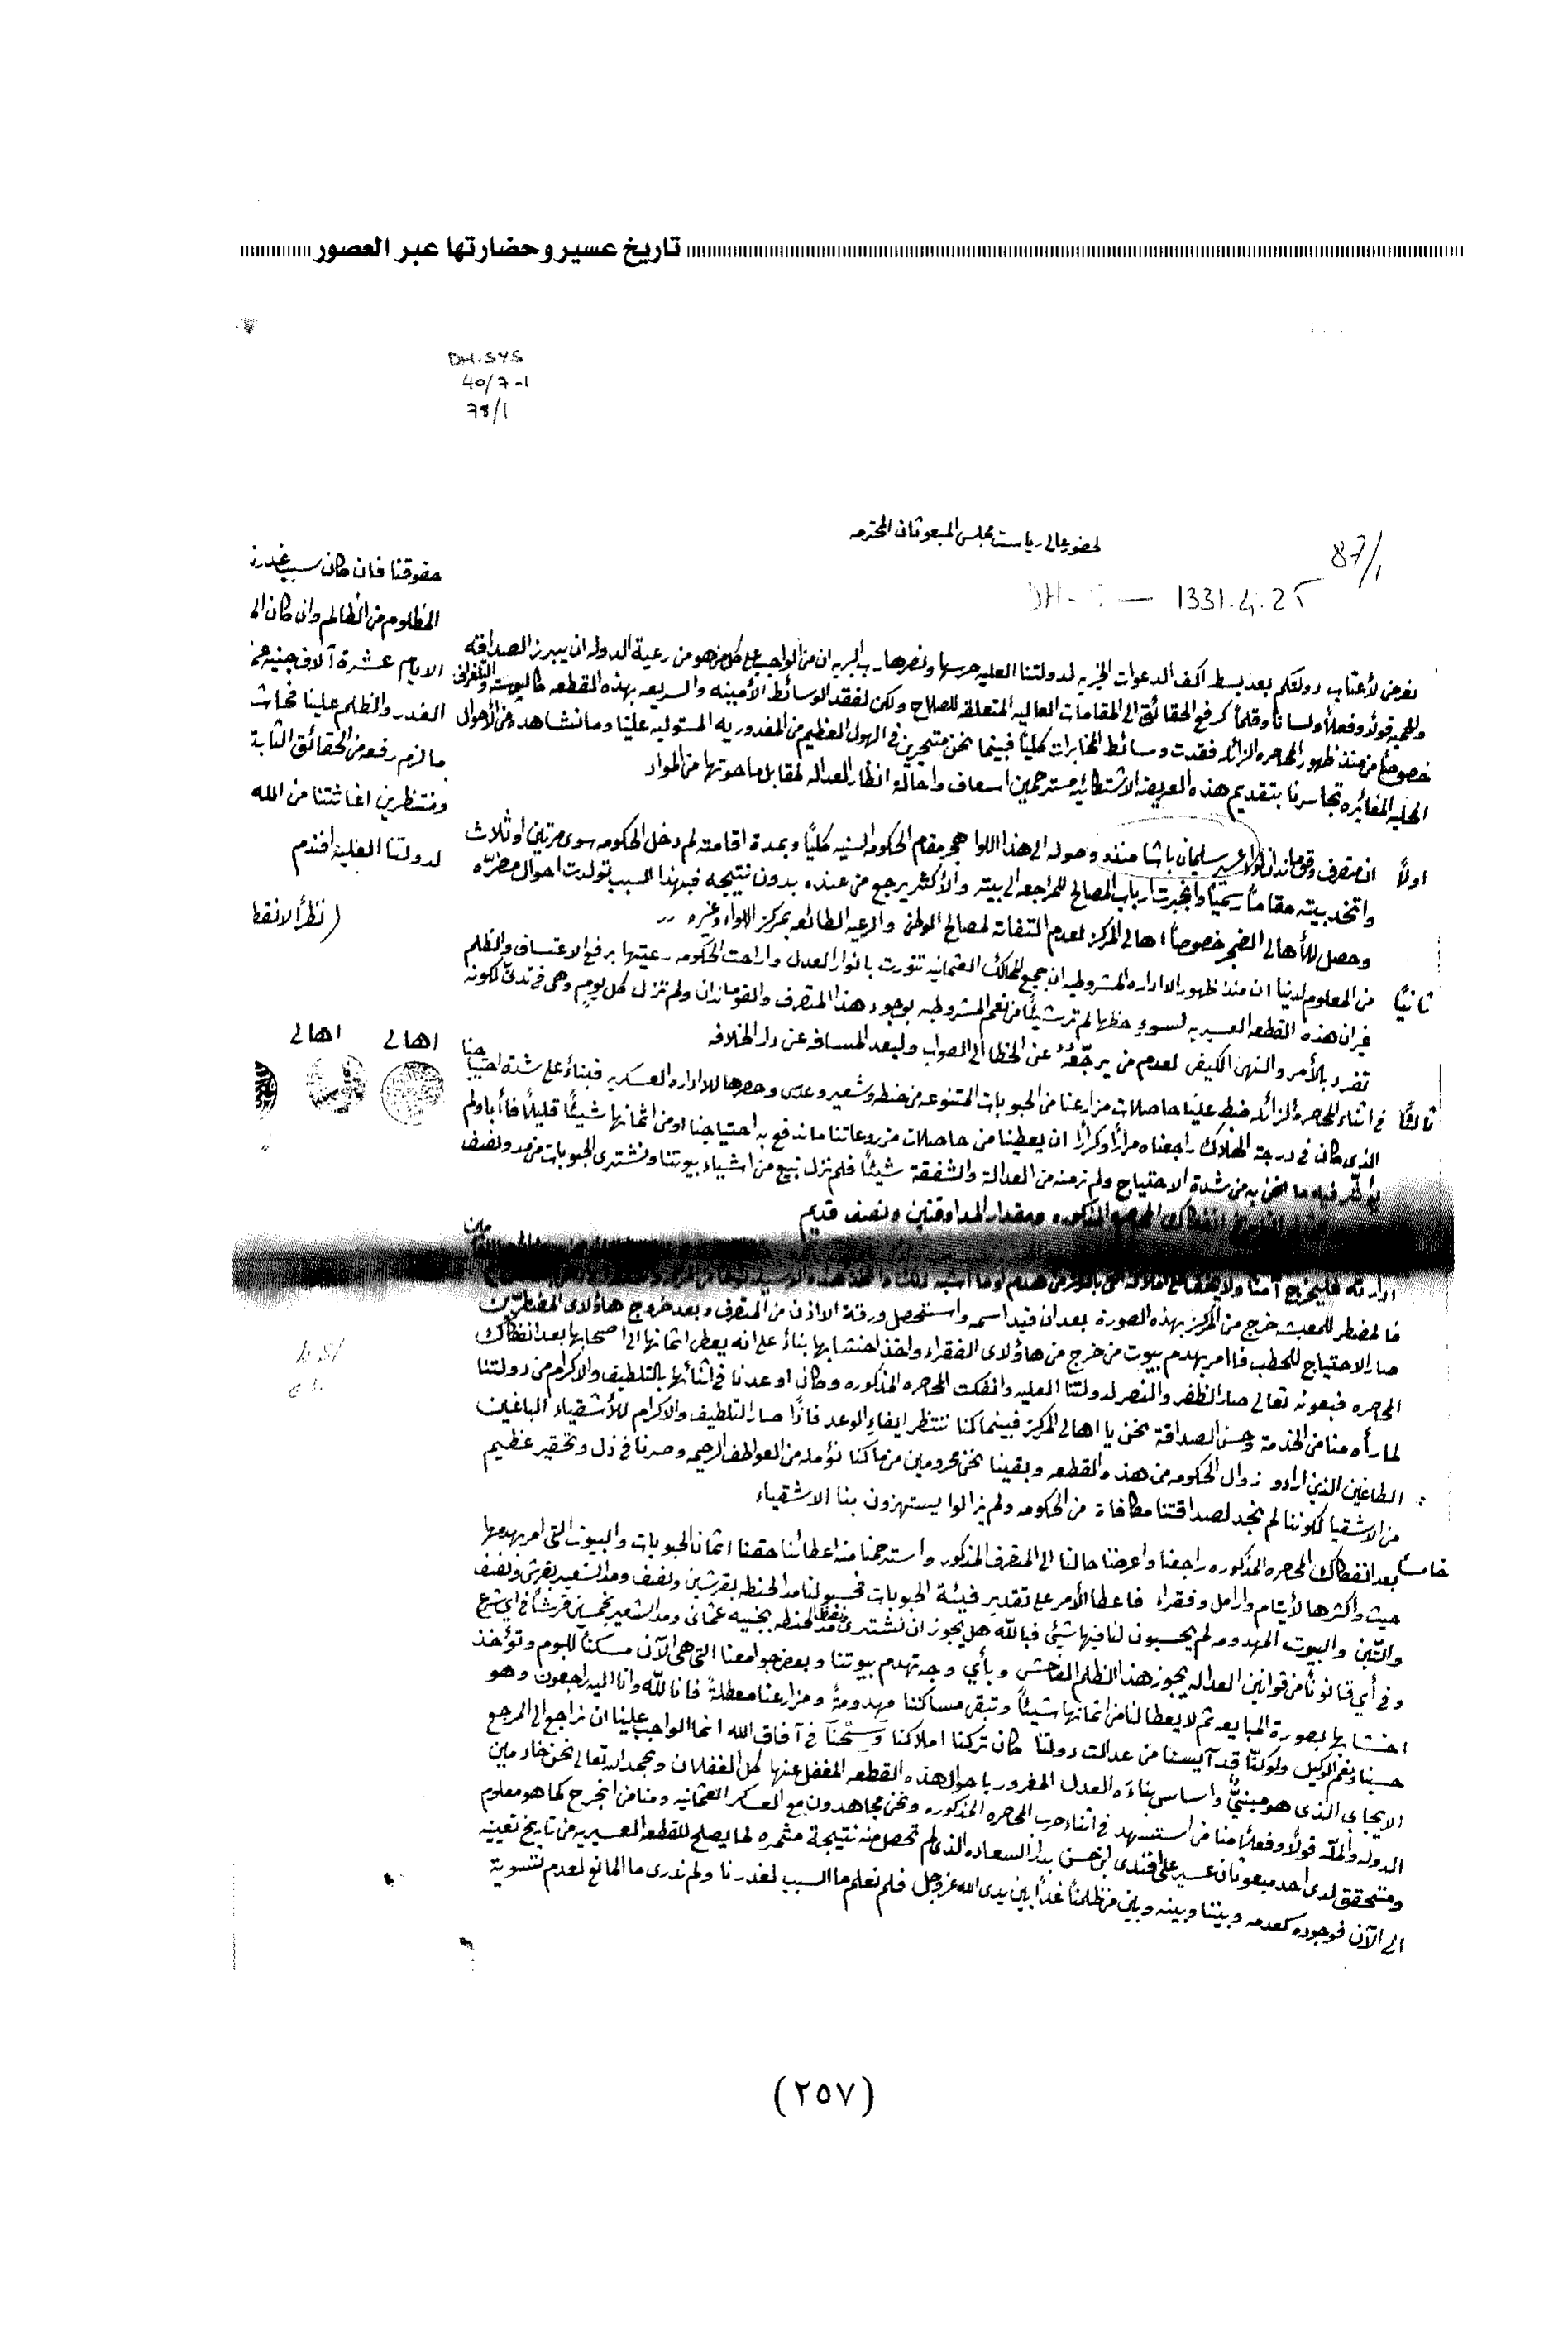 تاريخ عسير وحضارتها عبر العصور
DH.SYS
40/7-1
78/1
لحضور عالى رياست مجلس المبعوثان المحترمه
87/1
1331.4.25
نعرض لأعتاب دولتكم بعد بسط اكف الدعوات الخيريه لدولتنا العليه حرسها ونصرها رب البريه ان من الواجب على كل من هو من رعية الدوله ان يبرز الصداقه
والحميه قولاً وفعلاً ولساناً وقلماً كرفع الحقائق الى المقامات العاليه المتعلقه للصلاح ولكن لفقد الوسائط الأمينه والسريعه بهذه القطعه كالبوسته والتلغراف
خصوصاً من منذ ظهور المحاصره الزائله فقدت وسائط المخابرات كلياً فبينما نحن متحيرين في الهول العظيم من المغدوريه المستوليه علينا وما نشاهد من الأحوال
المحليه المغائره تجاسرنا بتقديم هذه العريضه الاشتكائيه مسترحمين اسعاف واحالة انظار العداله لمقابل ما حوتها من المواد
اولاً ان متصرف وقوماندان لواء عسير سليمان باشا منذ وصوله الى هذا اللوا هجر مقام الحكومه السنيه كلياً وبمدة اقامته لم دخل الحكومه سوى مرتين او ثلاث
واتخد بيته مقاماً رسمياً وانجبرت ارباب المصالح للمراجعه الى بيته والأكثر يرجع من عنده بدون نتيجه فبهذا السبب تولدت احوال مضرّه
وحصل للأهالى الضجر خصوصاً اهالى المركز لعدم التفاته لمصالح الوطن والرعيه الطائعه بمركز اللواء وغيره
ثانياً من المعلوم لدينا ان منذ ظهور الاداره المشروطيه ان جميع الممالك العثمانيه تنورت بانوار العدل واراحت الحكومه رعيتها برفع الاعتساف والظلم
غير ان هذه القطعه العسيريه لسوء حظها لم تر شيئاً من نعم المشروطيه بوجود هذا المتصرف والقوماندان ولم تزل كل يوم وهى في تدنّى لكونه
تفرد بالأمر والنهى الكيفى لعدم من يرجّعه عن الخطا الى الصواب ولبعد المسافه عن دار الخلافه
ثالثاً في اثناء المحاصره الزائله ضبط علينا حاصلات مزارعنا من الحبوبات المتنوعه من حنطه وشعير وعدس وحصرها للاداره العسكريه فبناءً على شدة احتياجنا
الذى كان في درجة الهلاك راجعناه مراراً وكراراً ان يعطينا من حاصلات مزروعاتنا ما ندفع به احتياجنا او من اثمانها شيئاً قليلاً فأبا ولم
يؤثر فيه ما نحن به من شدة الاحتياج ولم نر منه من العدالة والشفقة شيئاً فلم نزل نبيع من اشياء بيوتنا ونشترى الحبوبات من مد ونصف
ومقدار المد اوقتين ونصف قديم
فالمضطر للمعيشه خرج من المركز بهذه الصورة بعد ان قيد اسمه واستحصل ورقة الاذن من المتصرف وبعد خروج هاؤلاى المضطرّين
صار الاحتياج للحطب فاامر بهدم بيوت من خرج من هاؤلاى الفقراء واخذ اخشابها بناءً على انه يعطى اثمانها الى اصحابها بعد انفكاك
المحاصره فبعونه تعالى صار الظفر والنصر لدولتنا العليه وانفكت المحاصره المذكوره وكان اوعدنا في اثنائها بالتلطيف والاكرام من دولتنا
لما رأه منا من الخدمة وحسن الصداقة نحن يا اهالى المركز فبينما كنا ننتظر ايفاء الوعد فاذا صار التلطيف والاكرام للأشقياء الباغين
الطاغين الذين ارادو زوال الحكومه من هذه القطعه وبقينا نحن محرومين من ما كنا نؤمله من العواطف الرحيمه وصرنا في ذل وتحقير عظيم
من الاشقيا لكوننا لم نجد لصداقتنا مكافاة من الحكومه ولم يزالوا يستهزون بنا الاشقياء
خامساً بعد انفكاك المحاصره المذكوره راجعنا واعرضنا حالنا الى المتصرف المذكور واسترحمنا منه اعطائنا حقنا اثمان الحبوبات والبيوت التى امر بهدمها
حيث واكثرها لأيتام وارامل وفقراء فاعطا الأمر على تقدير فيئة الحبوبات فحسبو لنا مد الحنطه بقرشين ونصف ومد الشعير بقرش ونصف
والتّبن والبيوت المهدومه لم يحسبون لنا فيها شيئ فبالله هل يجوز ان نشترى مد ونصف الحنطه بجنيه عثمانى ومد الشعير بخمسين قرشاً في اى شرع
وفي أي قانونٌ من قوانين العداله يجوز هذا الظلم الفاحش وبأي وجه تهدم بيوتنا وبعض جوامعنا التى هى الآن مسكناً للبوم وتؤخذ
اخشابها بصورة المبايعه ثم لا يعطا لنا من اثمانها شيئاً وتبقى مساكننا مهدومةً ومزارعنا معطلةً فانا لله وانا اليه راجعون وهو
حسبنا ونعم الوكيل ولو كنّا قد آيسنا من عدالت دولتنا كان تركنا املاكنا وسحنا في آفاق الله انما الواجب علينا ان نراجع الى المرجع
الايجابى الذى هو مبنيٌّ واساسى بناءه العدل المغرور باحوال هذه القطعه المغفل عنها كل الغفلان وبحمد الله تعالى نحن خادمين
الدوله والملّه قولاً وفعلاً منا من استشهد في اثناء حرب المحاصره المذكوره ونحن مجاهدون مع العسكر العثمانيه ومنا من انجرح كما هو معلوم
ومتحقق لدى احد مبعوثان عسير على افندى ابن حسن بدار السعاده الذى لم تحصل منه نتيجة مثمره لما يصلح للقطعه العسيريه من تاريخ تعيينه
الى الآن فوجوده كعدمه وبيننا وبينه وبين من ظلمنا غداً بين يدى الله عز وجل فلم نعلم ما السبب لغدرنا ولم ندرى ما المانع لعدم تسوية
حقوقنا فان كان سبب غدرنا
المظلوم من الظالم وان كان الى
الايام عشرة آلاف جنيه
الغدر والظلم علينا
ما لزم رفعه من الحقائق الثابة
ومنتظرين اغاثتنا من الله
لدولتنا العلية افندم
اهالى
اهالى
(٢٥٧)